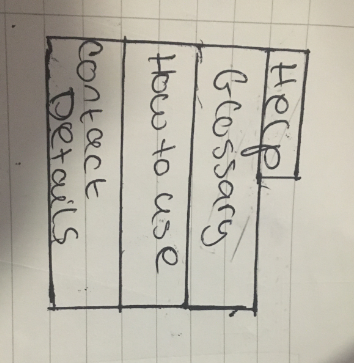 Help
Glossary
How to use
Contact
Details